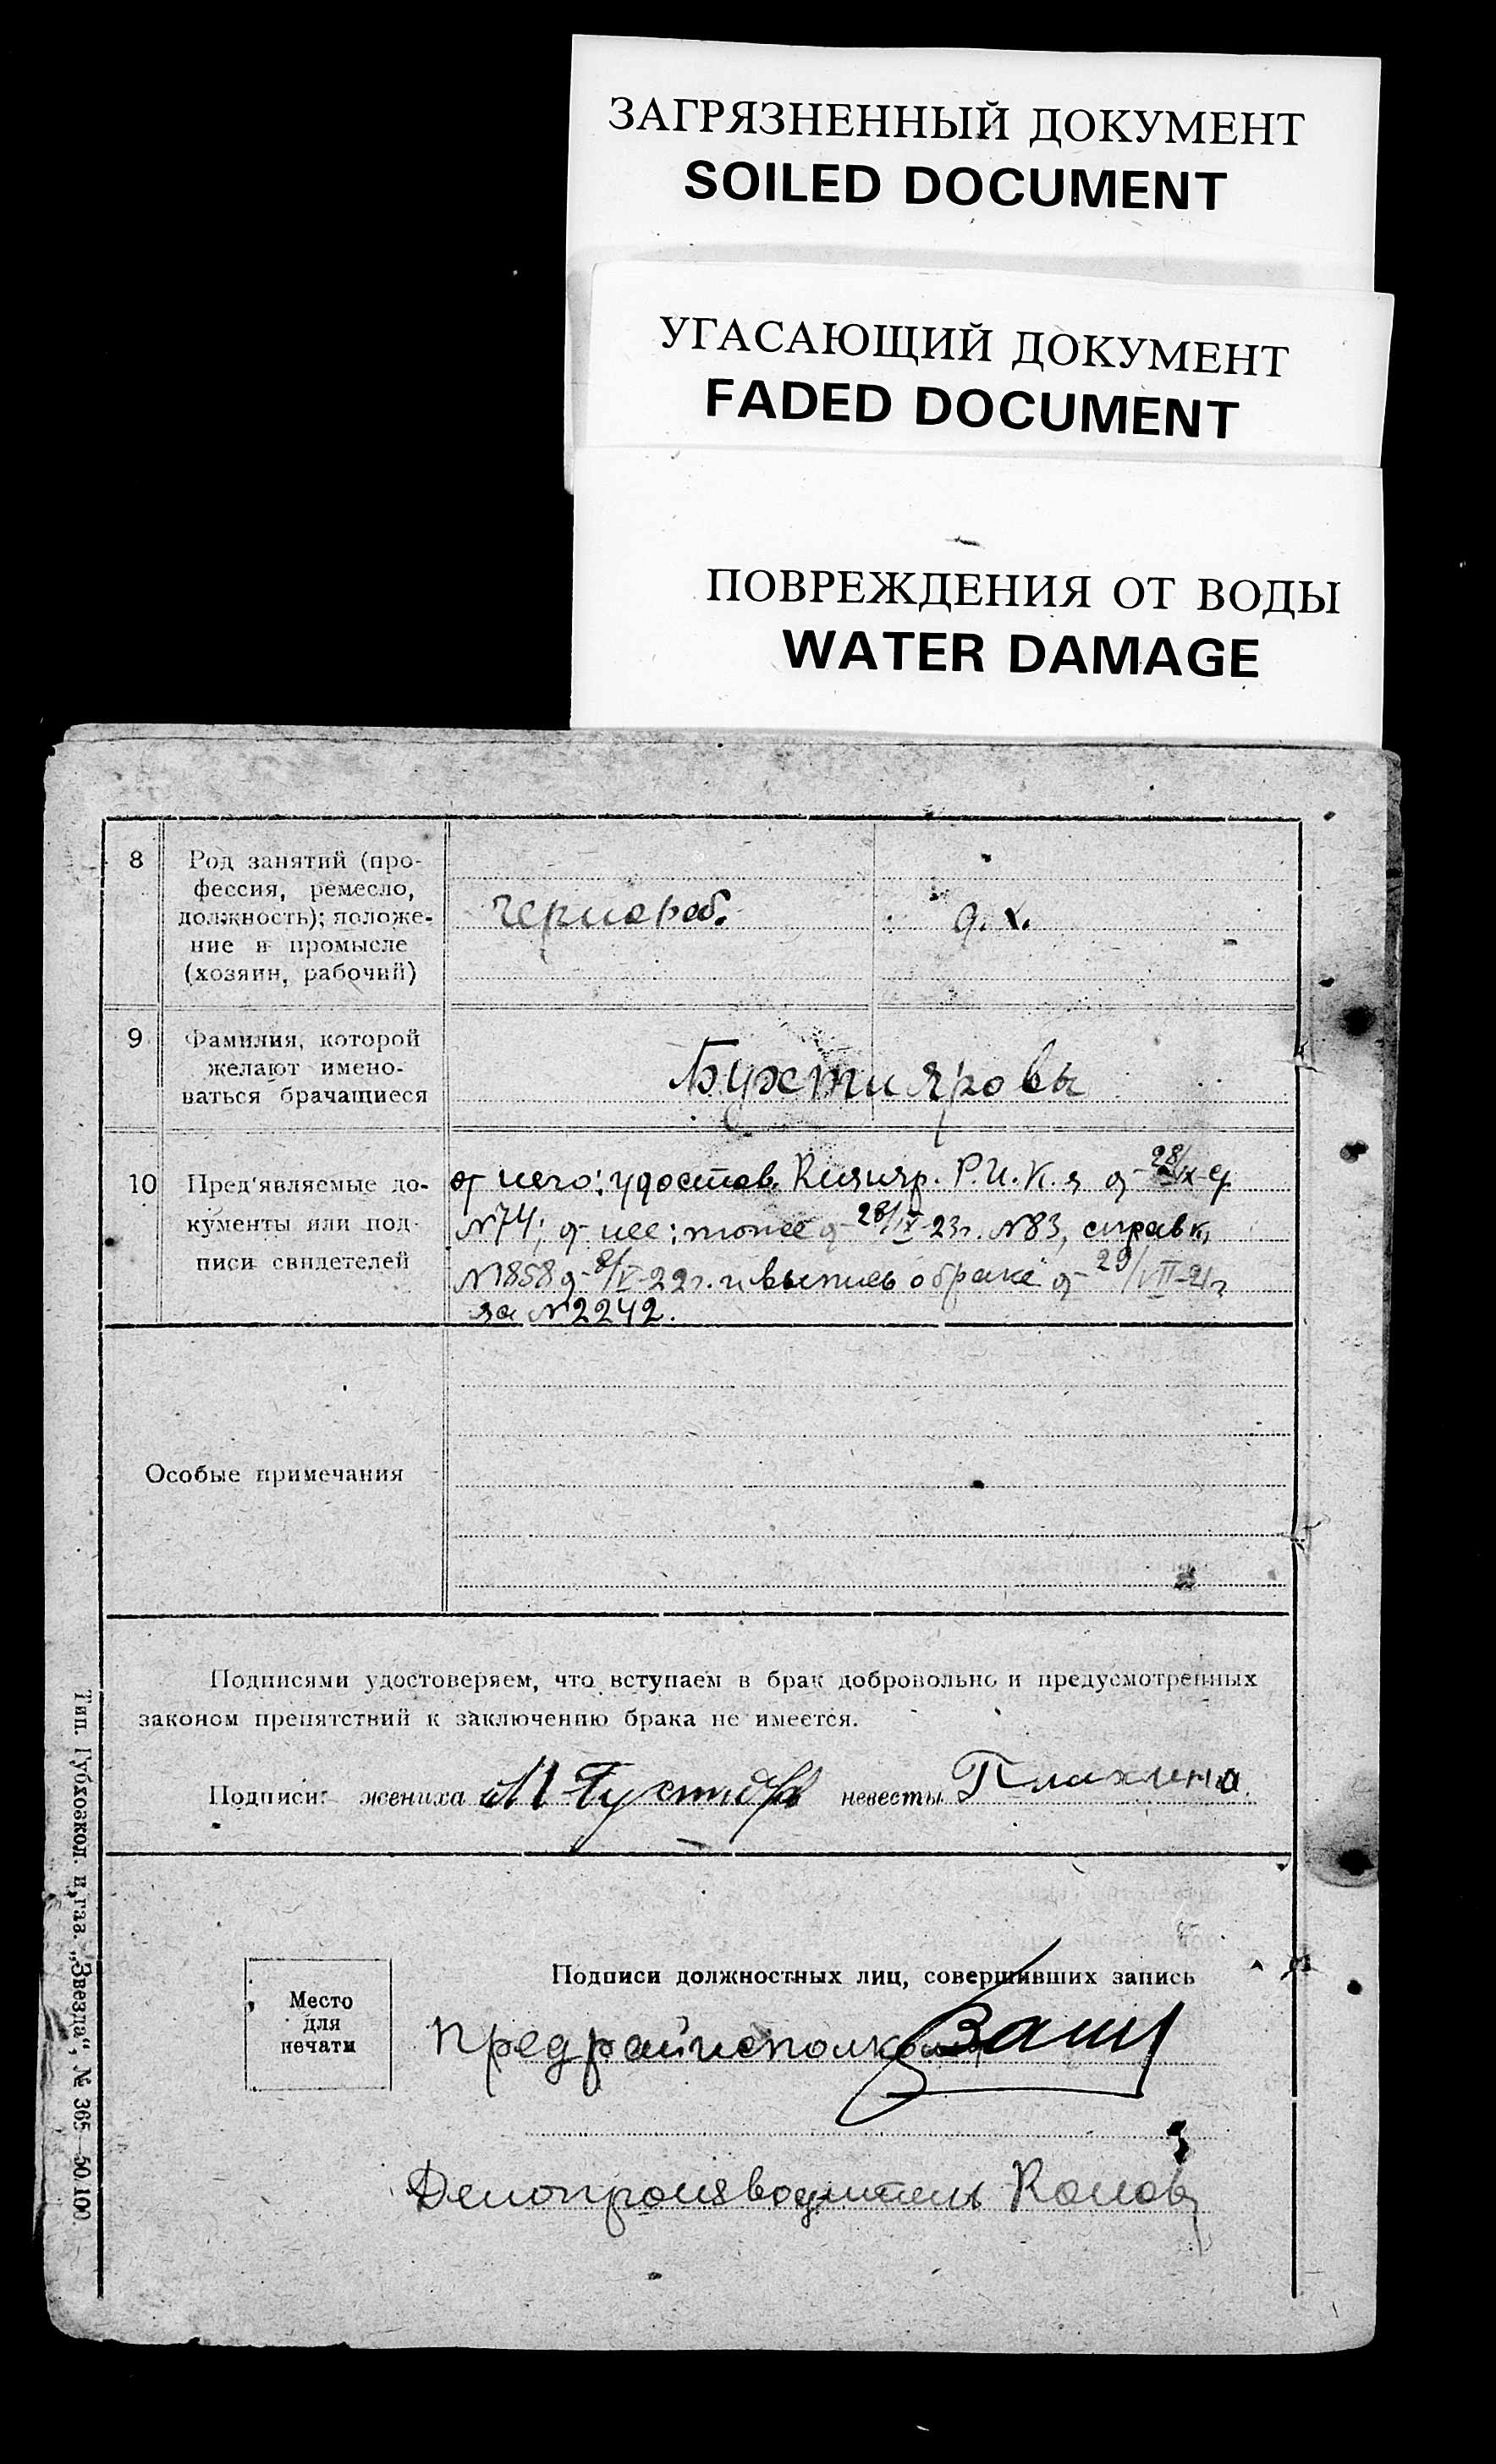 ЗАГРЯЗНЕННЫЙ ДОКУМЕНТ
SOILED DOCUMENT
УГАСАЮЩИЙ ДОКУМЕНТ
FADED DOCUMENT
ПОВРЕЖДЕНИЯ ОТ ВОДЫ
WATER DAMAGE
8
Род занятий (про-
фессия, ремесло,
должность); положе-
ние в промысле
(хозяин, рабочий)
чернораб.
д. х.
9
Фамилия, которой
желают имено-
ваться брачащиеся
Бухтияровы
10
Пред'являемые до-
кументы или под-
писи свидетелей
от него: удостов. Р. И. К.
№74; от нее; тоже от 28/ 23г. №83, справк,
№1858 от 8/V-22г. и выпись о браке от 29/VII-21г
за №2242.
Особые примечания
Подписями удостоверяем, что вступаем в брак добровольно и предусмотренных
законом препятствий к заключению брака не имеется.
Подписи: жениха невесты Плахина
Место
для
печати
Подписи должностных лиц, совершивших запись
Предрайисполкома
Делопроизводитель
Тип. Губхозкол. и газ. „Звезда“, № 365—50.100.